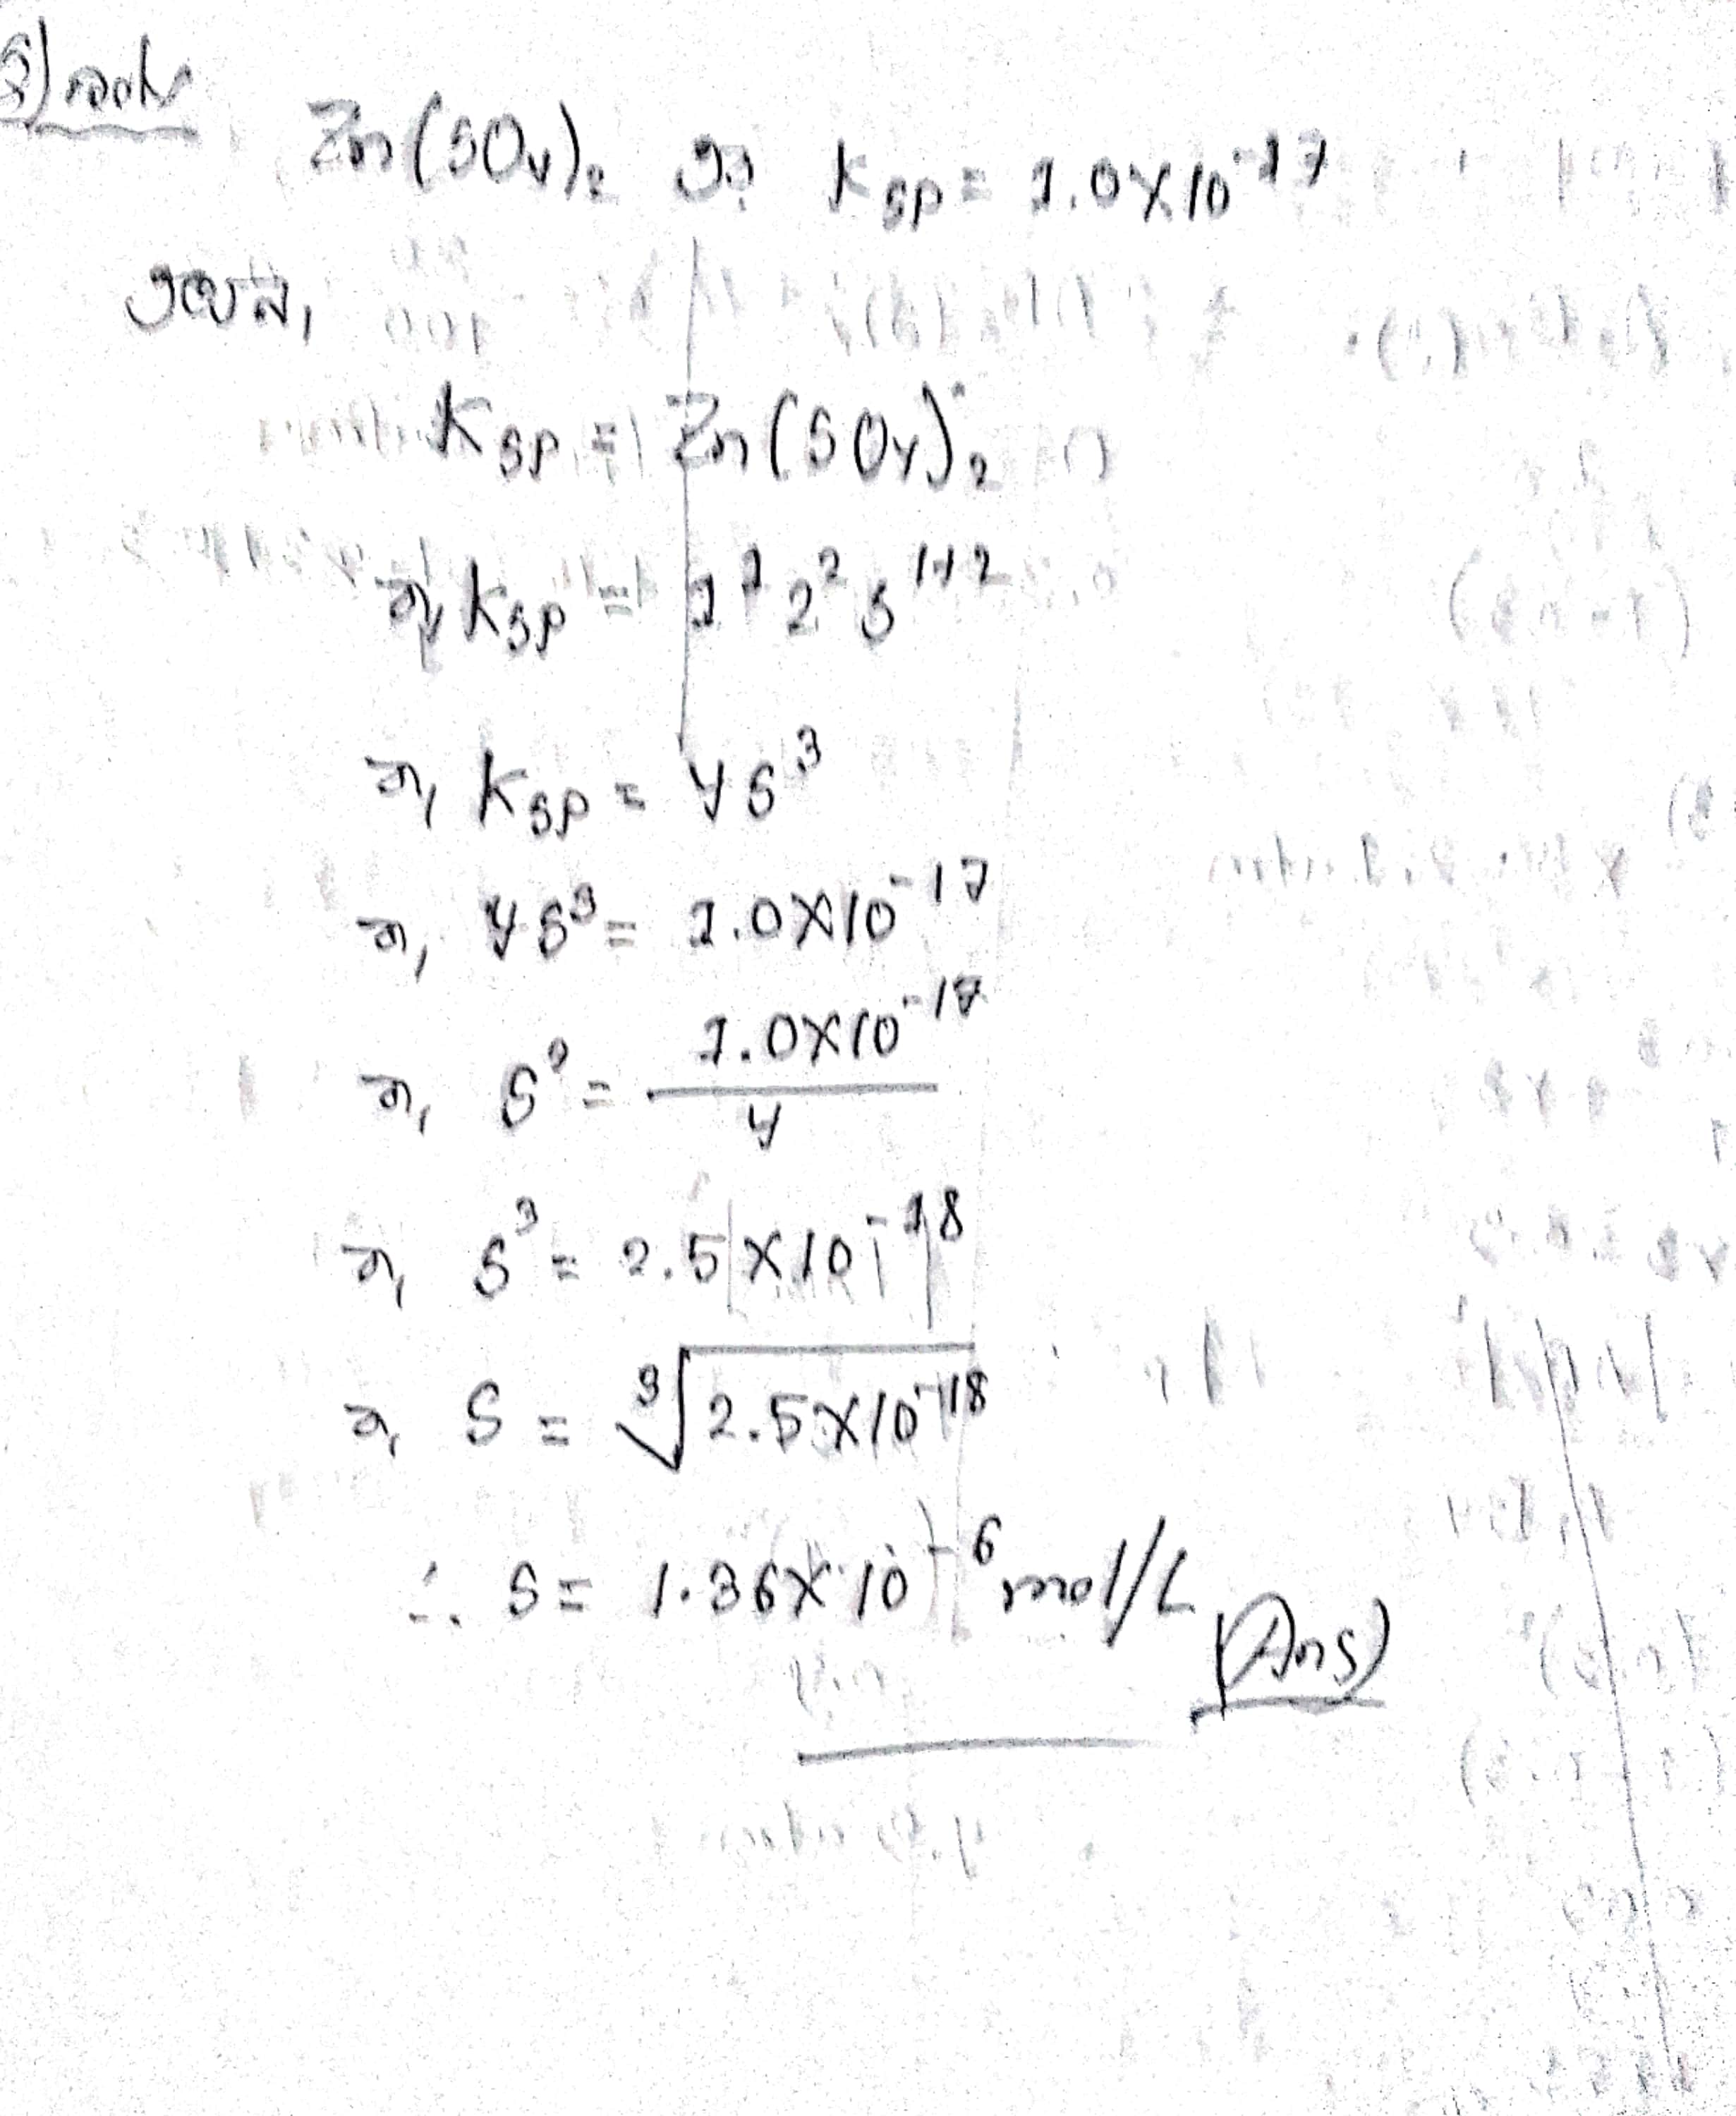 Zn(SO₄)₂ এর Ksp = 1.0×10⁻¹⁷
এখন,
Ksp = Zn(SO₄)₂
বা, Ksp = 1¹ 2² S¹⁺²
বা, Ksp = 4S³
বা, 4S³ = 1.0×10⁻¹⁷
বা, S³ = 1.0×10⁻¹⁷ / 4
বা, S³ = 2.5×10⁻¹⁸
বা, S = ³√2.5×10⁻¹⁸
∴ S = 1.36×10⁻⁶ mol/L (Ans)